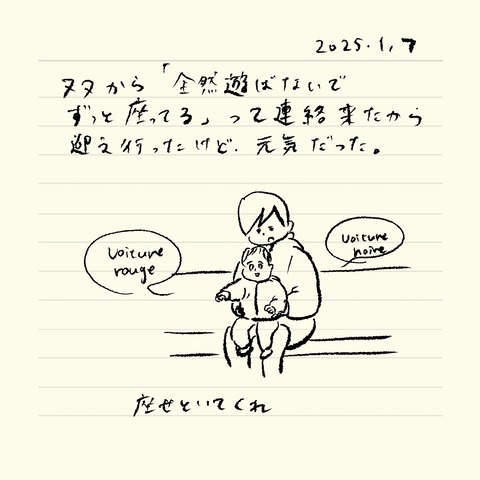 2025.1.7
ヌヌから「全然遊ばないで
ずっと座ってる」って連絡来たから
迎え行ったけど、元気だった。
voiture
rouge
voiture
noire
座せといてくれ